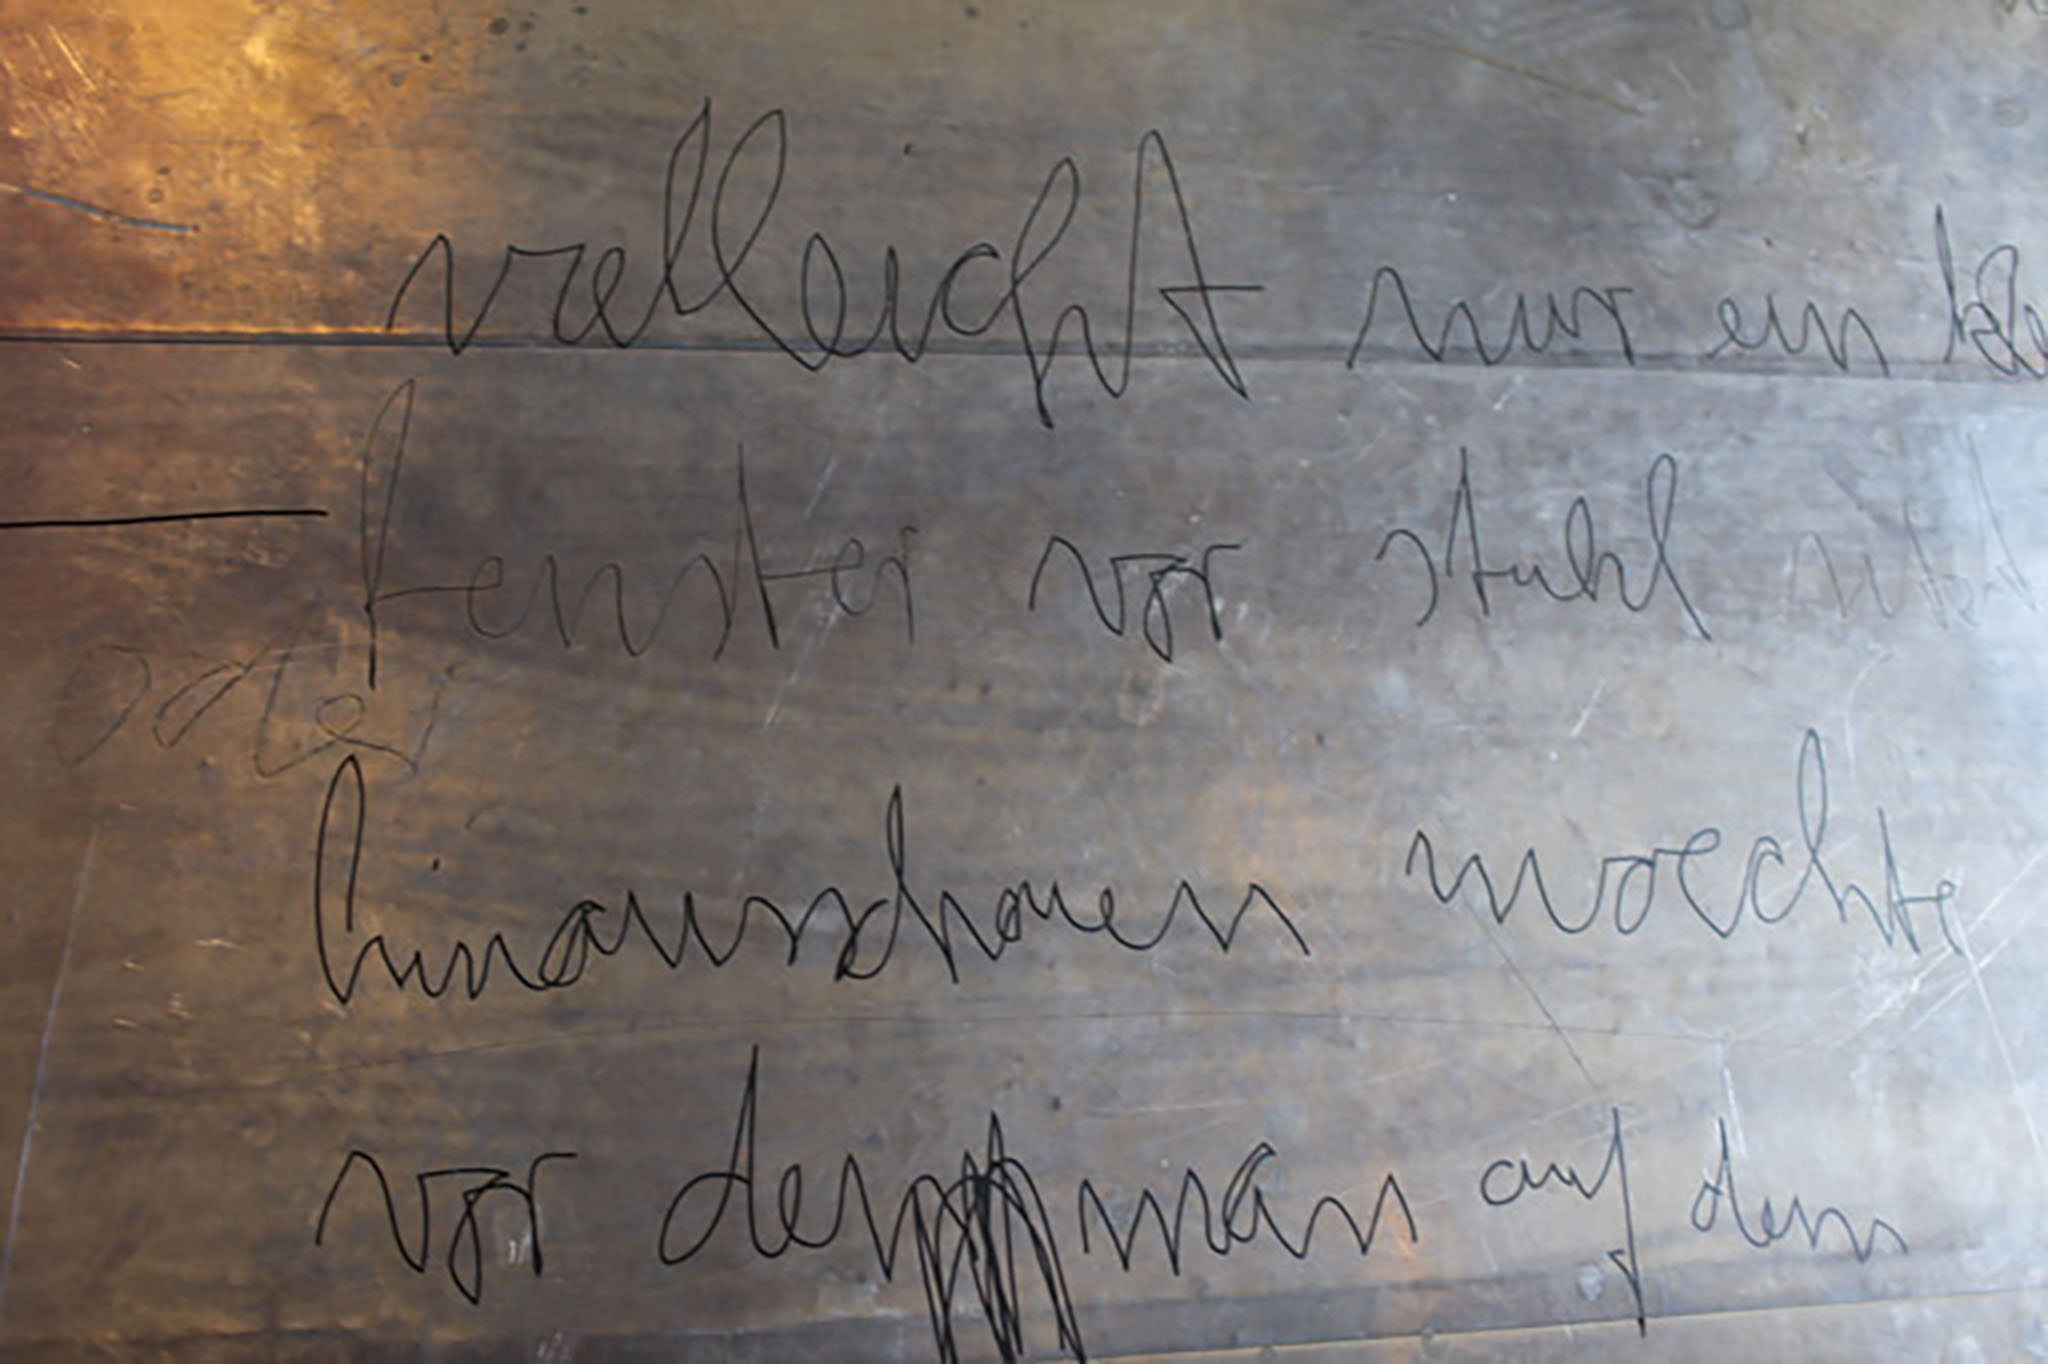 vielleicht nur ein
fenster vor stuhl
oder
hinausschauen moechte
vor dem man auf dem